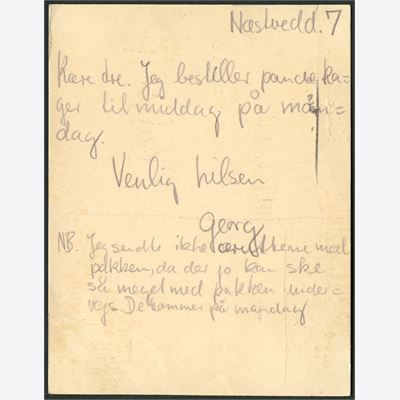 Næstved d. 7
Kære dre. Jeg bestiller pandeka=
ger til middag på man=
dag.
Venlig hilsen
Georg
NB. Jeg sendte ikke med
pakken, da der jo kan ske
så meget med pakken under=
vejs. De kommer på mandag